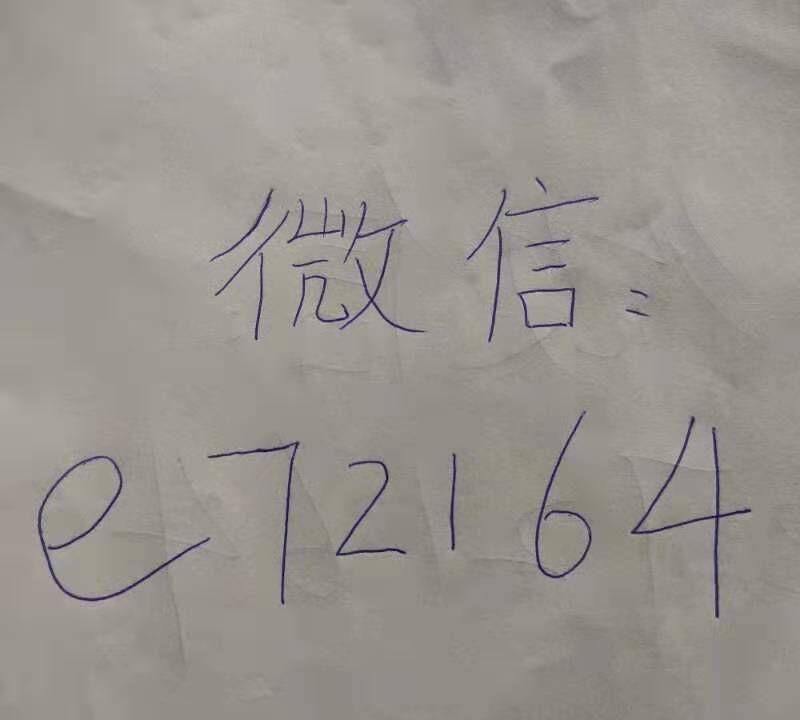 微信：
e72164